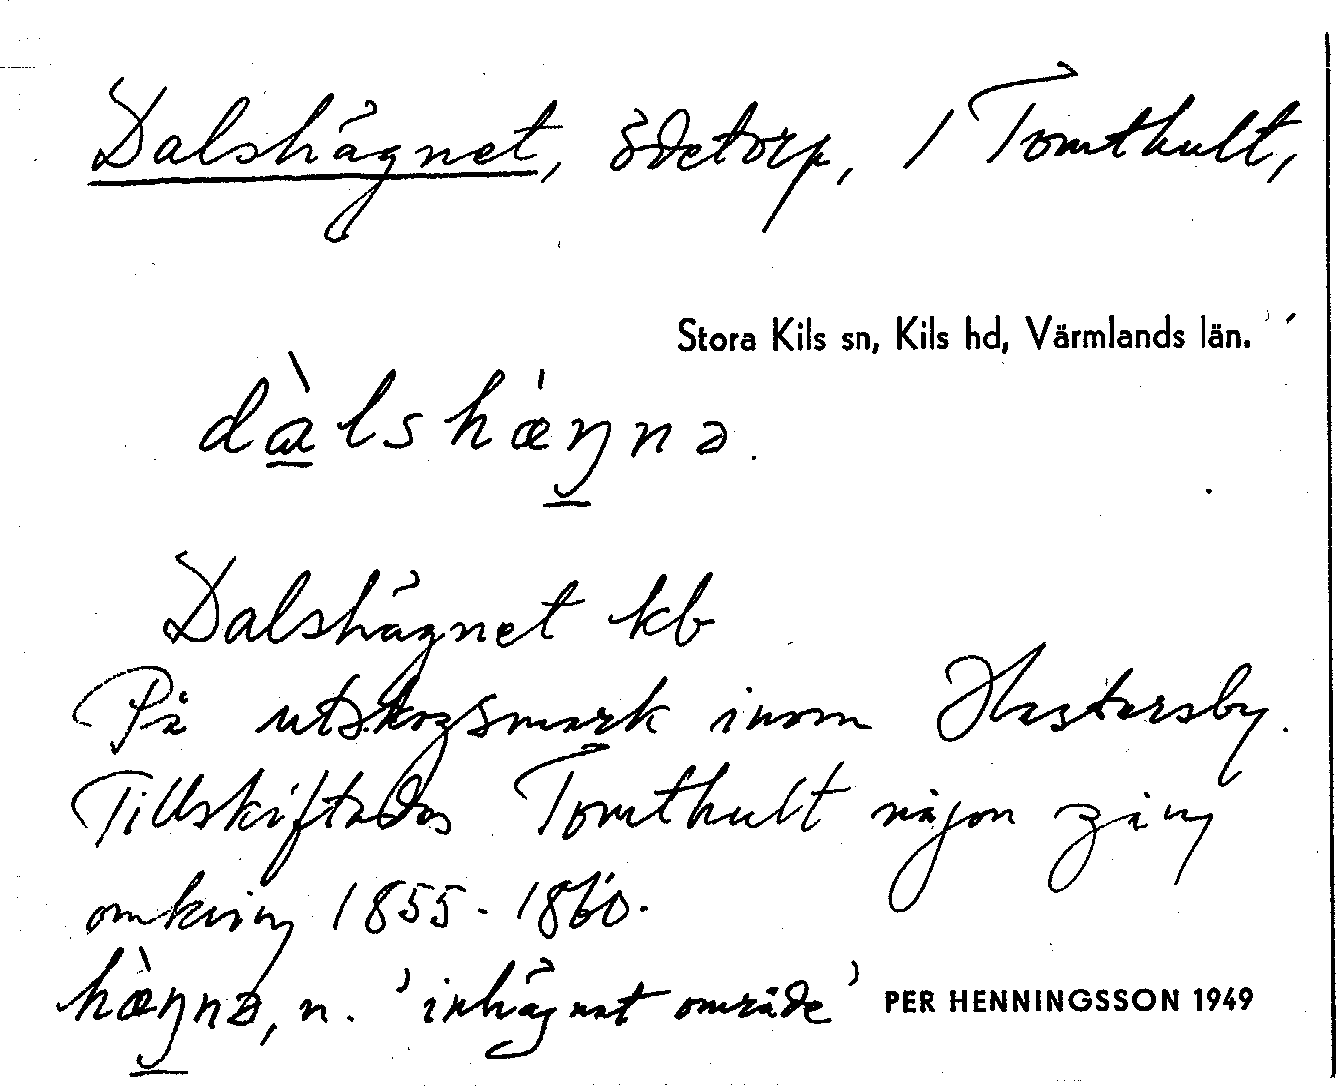 Dalshägnet, ödetorp, 1 Tomthult,
Stora Kils sn, Kils hd, Värmlands län.
dàlshæ̀ŋnə.
Dalshägnet kb
På utskogsmark inom Hastersby.
Tillskiftades Tomthult någon gång
omkring 1855-1860.
hæ̀ŋnə, n. 'inhägnat område'
PER HENNINGSSON 1949